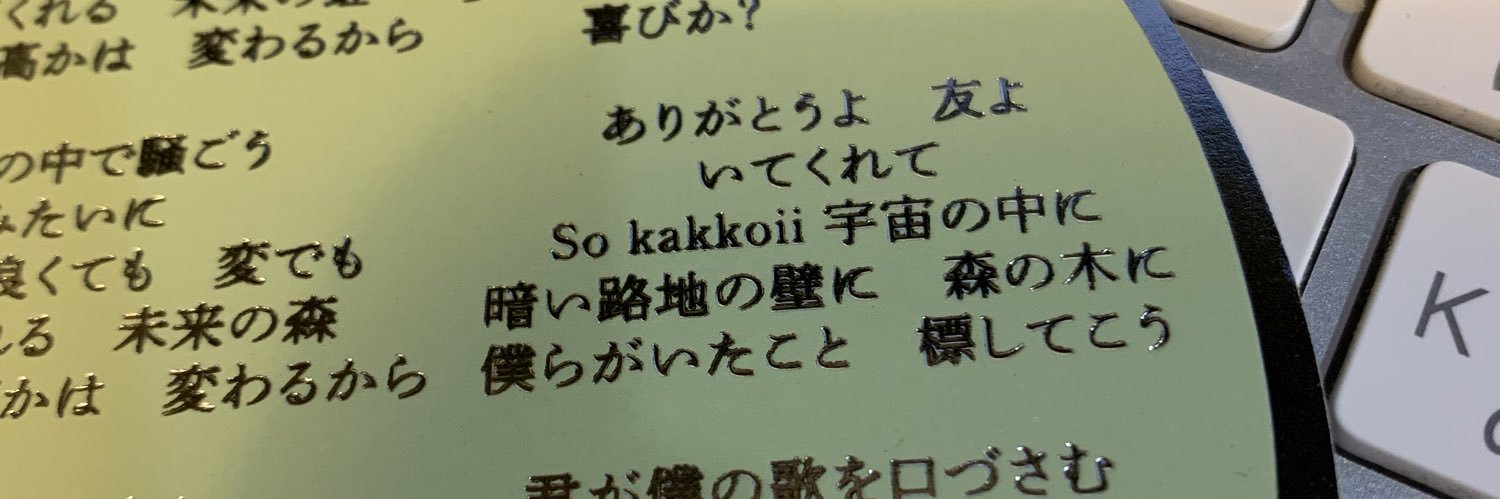 くれる 未来の
高かは 変わるから
の中で騒ごう
みたいに
良くても 変でも
れる 未来の森
かは 変わるから
喜びか?
ありがとうよ 友よ
いてくれて
So kakkoii 宇宙の中に
暗い路地の壁に 森の木に
僕らがいたこと 標してこう
君が僕の歌を口づさむ
K